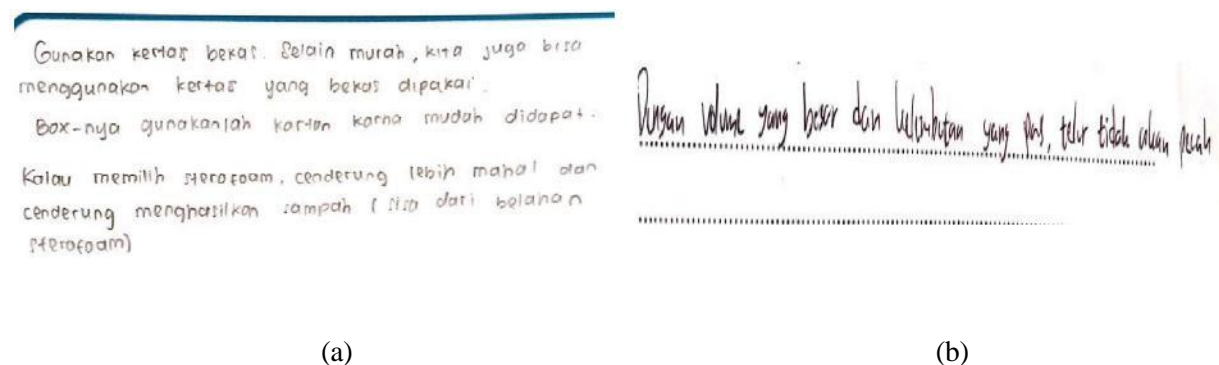 Gunakan kertas bekas. Selain murah, kita juga bisa
menggunakan kertas yang bekas dipakai.
Box-nya gunakanlah karton karna mudah didapat.
Kalau memilih sterofoam, cenderung lebih mahal dan
cenderung menghasilkan sampah (sisa dari belahan
sterofoam)
Dengan volume yang besar dan kelembutan yang pas, telur tidak akan pecah
(a)
(b)